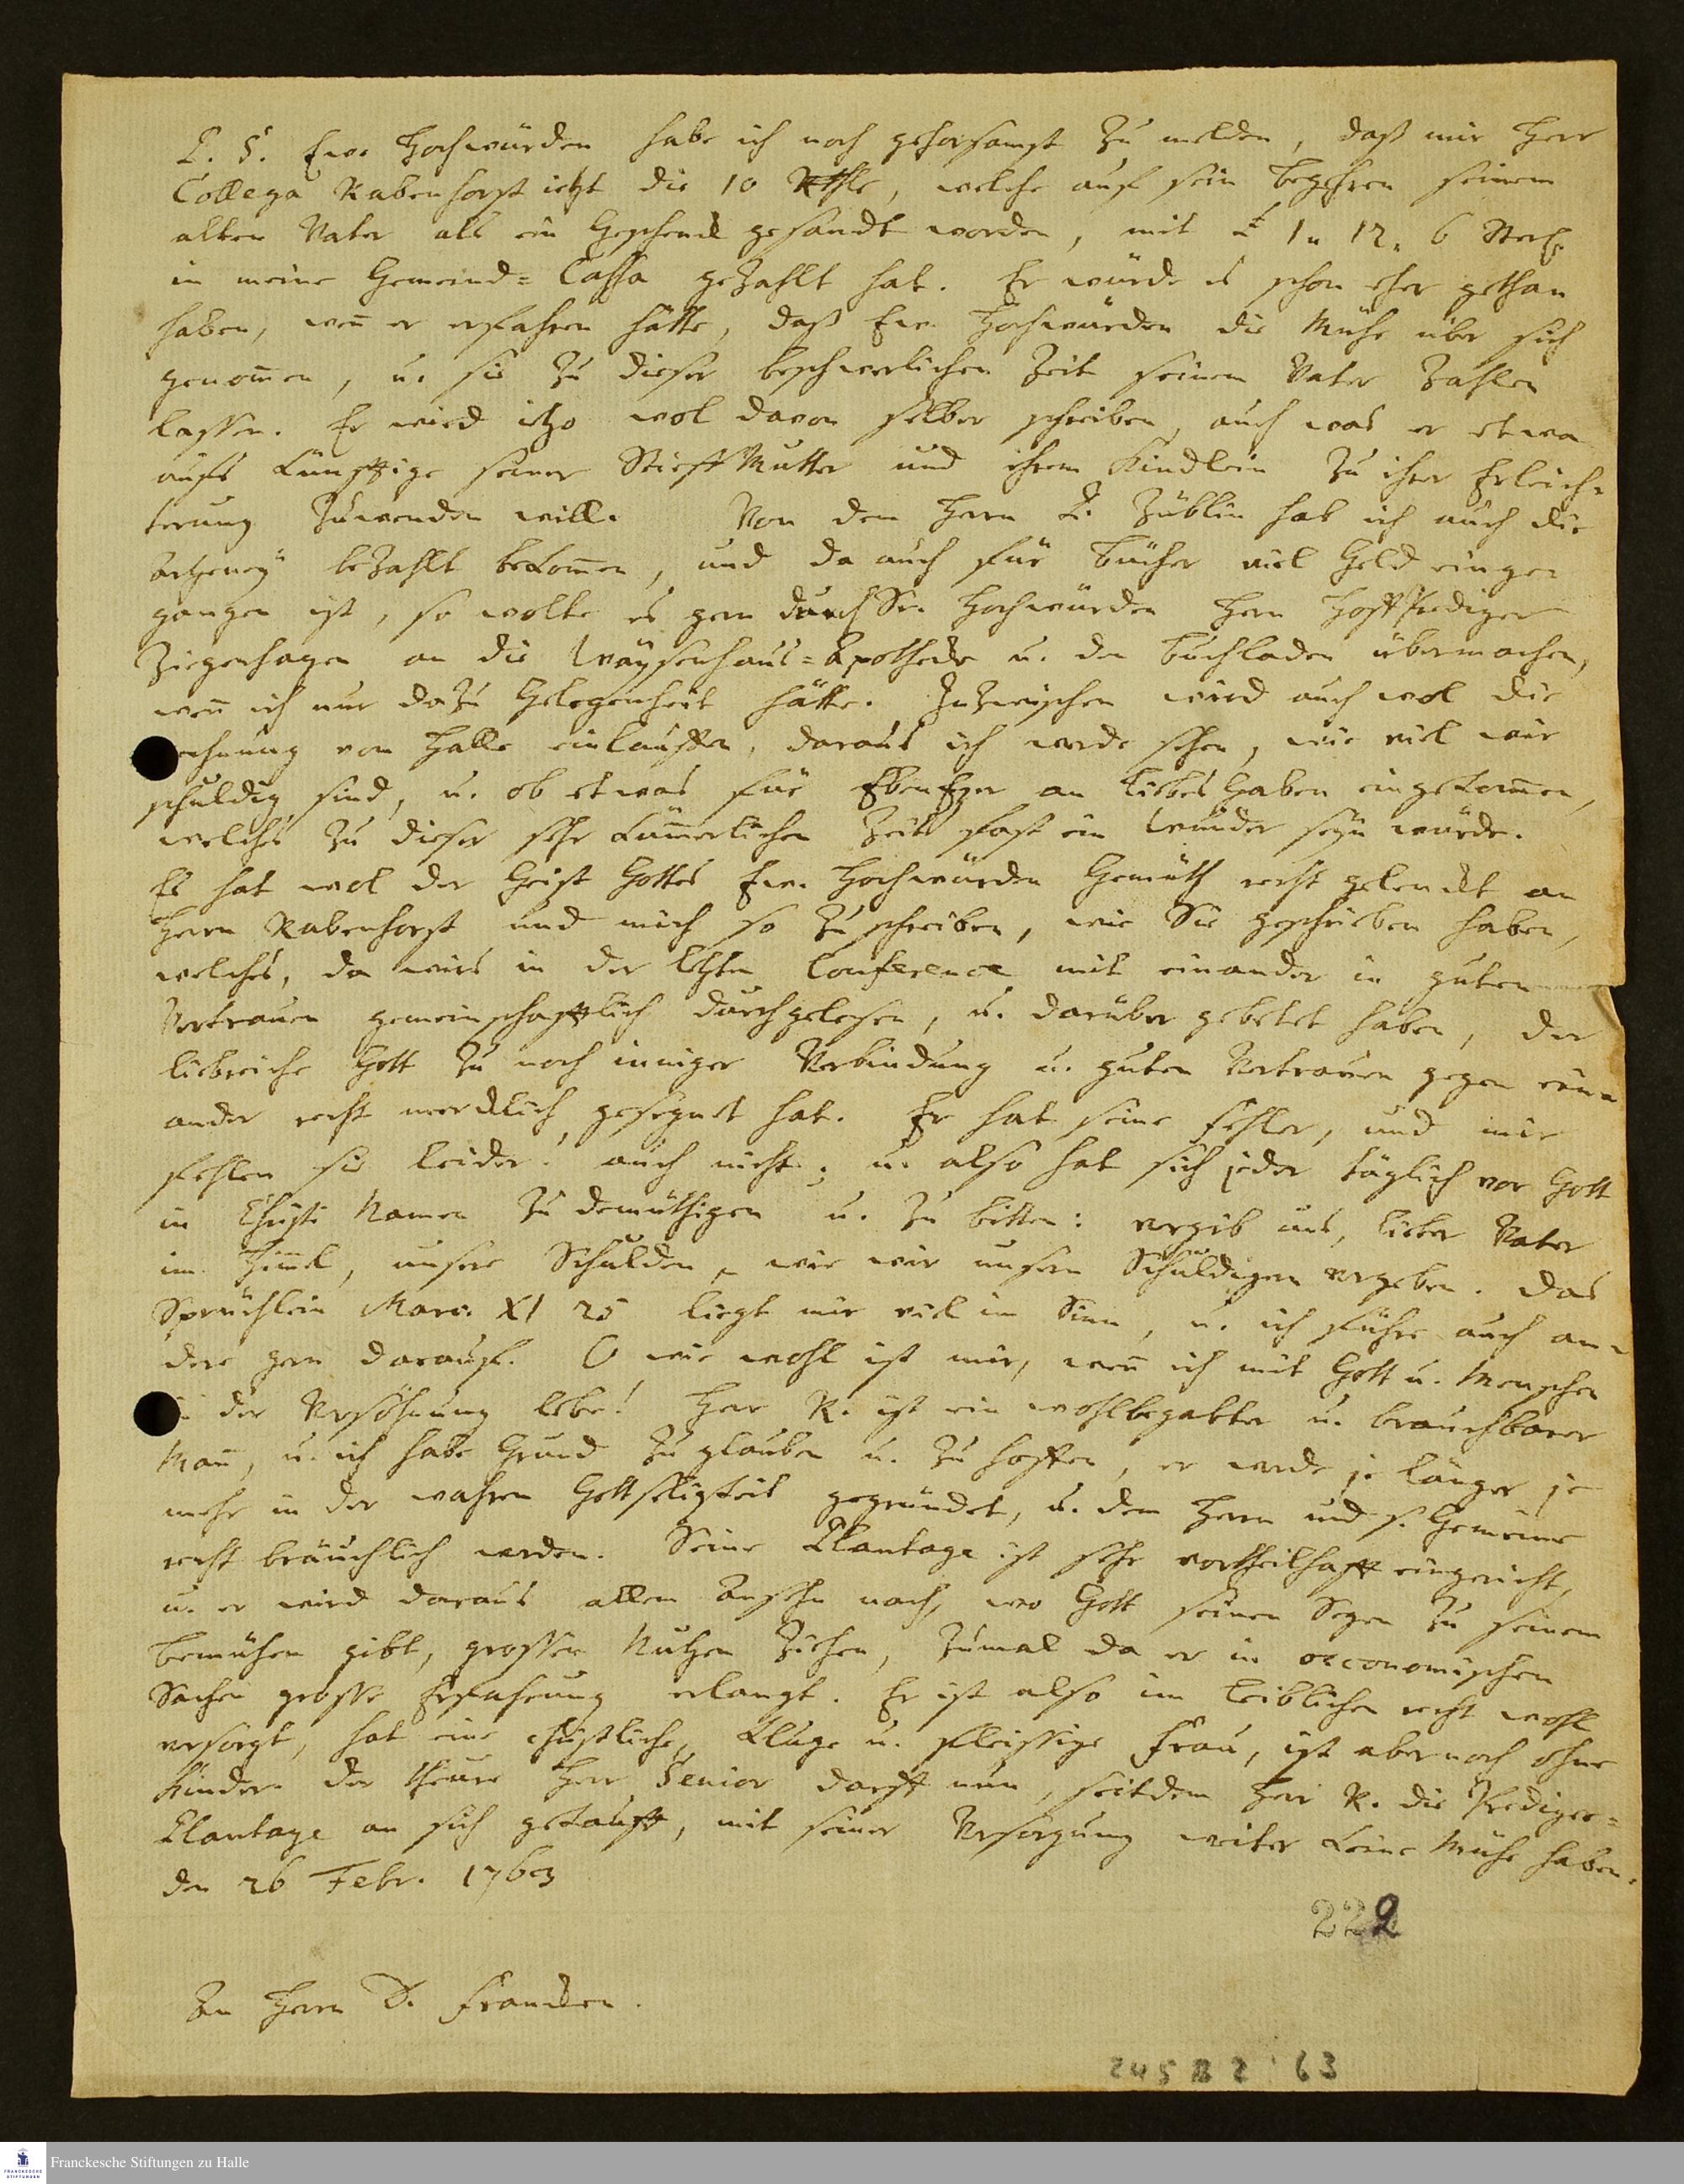 P. S. Ew. Hochwürden habe ich noch gehorsamst zu melden, daß mir Herr
Collega Rabenhorst itzt die 10 Rthlr, welche auf sein Begehren seinem
alten Vater als ein Geschenck gesandt worden, mit £ 1„ 12„ 6 Sterl.
in meine Gemeind=Cassa gezahlt hat. Er würde es schon eher gethan
haben, weñ er erfahren hätte, daß Ew. Hochwürden die Mühe über sich
genom̃en, u. sie zu dieser beschwerlichen Zeit seinem Vater zahlen
lassen. Er wird itzo wol davon selber schreiben, auch was er etwa
aufs künfftige seiner StieffMutter und ihrem Kindlein zu ihrer Erleich-
terung zuwenden will. Von dem Herrn P. Züblin hab ich auch die
Artzeney bezahlt bekom̃en, und da auch für Bücher viel Geld einge-
gangen ist, so wolte es gern durch Sr. Hochwürden Herrn HoffPrediger
Ziegenhagen an die Waysenhaus=Apothecke u. den Buchladen übermachen,
weñ ich nur dazu Gelegenheit hätte. Inzwischen wird auch wol die
echnung von Halle einlauffen, daraus ich werde sehen, wie viel wir
schuldig sind, u. ob etwas für EbenEzer an LiebesGaben eingekom̃en,
welches zu dieser sehr küm̃erlichen Zeit fast ein Wunder seyn würde.
Es hat wol der Geist Gottes Ew. Hochwürden Gemüth recht gelenckt an
Herrn Rabenhorst und mich so zu schreiben, wie Sie geschrieben haben,
welches, da wirs in der letzten Conference mit einander in guten
Vertrauen gemeinschafftlich durchgelesen, u. darüber gebetet haben, der
liebreiche Gott zu noch inniger Verbindung u. guten Vertrauen gegen ein-
ander recht mercklich gesegnet hat. Er hat seine Fehler, und mir
fehlen sie leider! auch nicht; u. also hat sich jeder täglich vor Gott
in Christi Namen zu demüthigen u. zu bitten: vergib uns, lieber Vater
im Him̃el, unsere Schulden, wie wir unsern Schuldigern vergeben. Das
Sprüchlein Marc. XI 25 liegt mir viel im Sinn, u. ich führe auch an-
dere gern darauf. O wie wohl ist mir, weñ ich mit Gott u. Menschen
in der Versöhnung lebe! Herr R. ist ein wohlbegabter u. brauchbarer
Mañ, u. ich habe Grund zu glauben u. zu hoffen, er werde je länger je
mehr in der wahren Gottseligkeit gegründet, u. dem Herrn und s. Gemeine
recht bräuchlich werden. Seine Plantage ist sehr vortheilhafft eingericht,
u. er wird daraus allem Ansehn nach, wo Gott seinen Segen zu seinem
Bemühen gibt, grossen Nutzen ziehen, zumal da er in oeconomischen
Sachen grosse Erfahrung erlangt. Er ist also im Leiblichen recht wohl
versorgt, hat eine christliche, kluge u. fleissige Frau, ist aber noch ohne
Kinder. Der theure Herr Senior darff nun, seitdem Herr R. die Prediger=
Plantage an sich gekaufft, mit seiner Versorgung weiter keine Mühe haben.
den 26 Febr. 1763
222
An Herrn D. Francken.
245 B 2 : 63
Franckesche Stiftungen zu Halle
FRANCKESCHE STIFTUNGEN